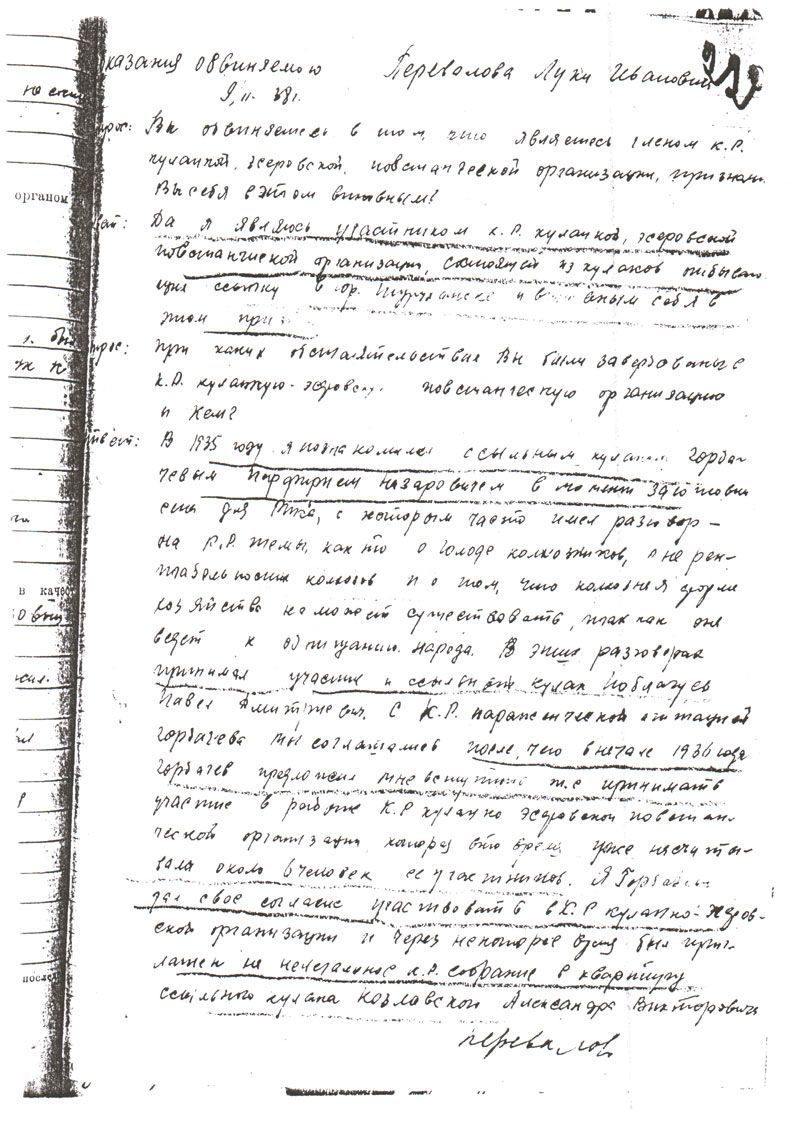 казания обвиняемого Перевалова Луки Ивановича
9/II-38 г.
прос: Вы обвиняетесь в том, что являетесь членом к.р.
кулацкой, эсеровской, повстанческой организации, признаете
Вы себя в этом виновным?
вет: Да я являюсь участником к.р. кулацкой, эсеровской
повстанческой организации, состоящей из кулаков отбываю
щих ссылку в Туруханске и себя в
этом
прос: При каких обстоятельствах Вы были завербованы в
к.р. кулацкую-эсеровскую повстанческую организацию
и кем?
твет: В 1935 году я познакомился ссыльным кулаком Горба-
чевым Порфирием Назаровичем в момент заготовки
сена для с которым часто имел разговор-
на к.р. темы, как то о голоде колхозников, о не рен-
табельности колхозов и о том, что колхозная форма
хозяйства не может существовать, так как она
ведет к обнищанию народа. В этих разговорах
принимал участие и ссыльный кулак
Павел Дмитриевич. С к.р. агитацией
Горбачева мы соглашались после, чего в начале 1936 года
Горбачев предложил мне вступить принимать
участие в работе к.р кулацко эсеровской повстан-
ческой организации которая в то время уже насчиты-
вала около 6 человек ее участников. Я Горбачеву
дал свое согласие участвовать в к.р кулацко-эсеров-
ской организации и через некоторое время был приг-
лашен на нелегальное к.р. собрание в квартиру
ссыльного кулака Козловской Александра Викторовича
Перевалов
не
органом
в качес
послед